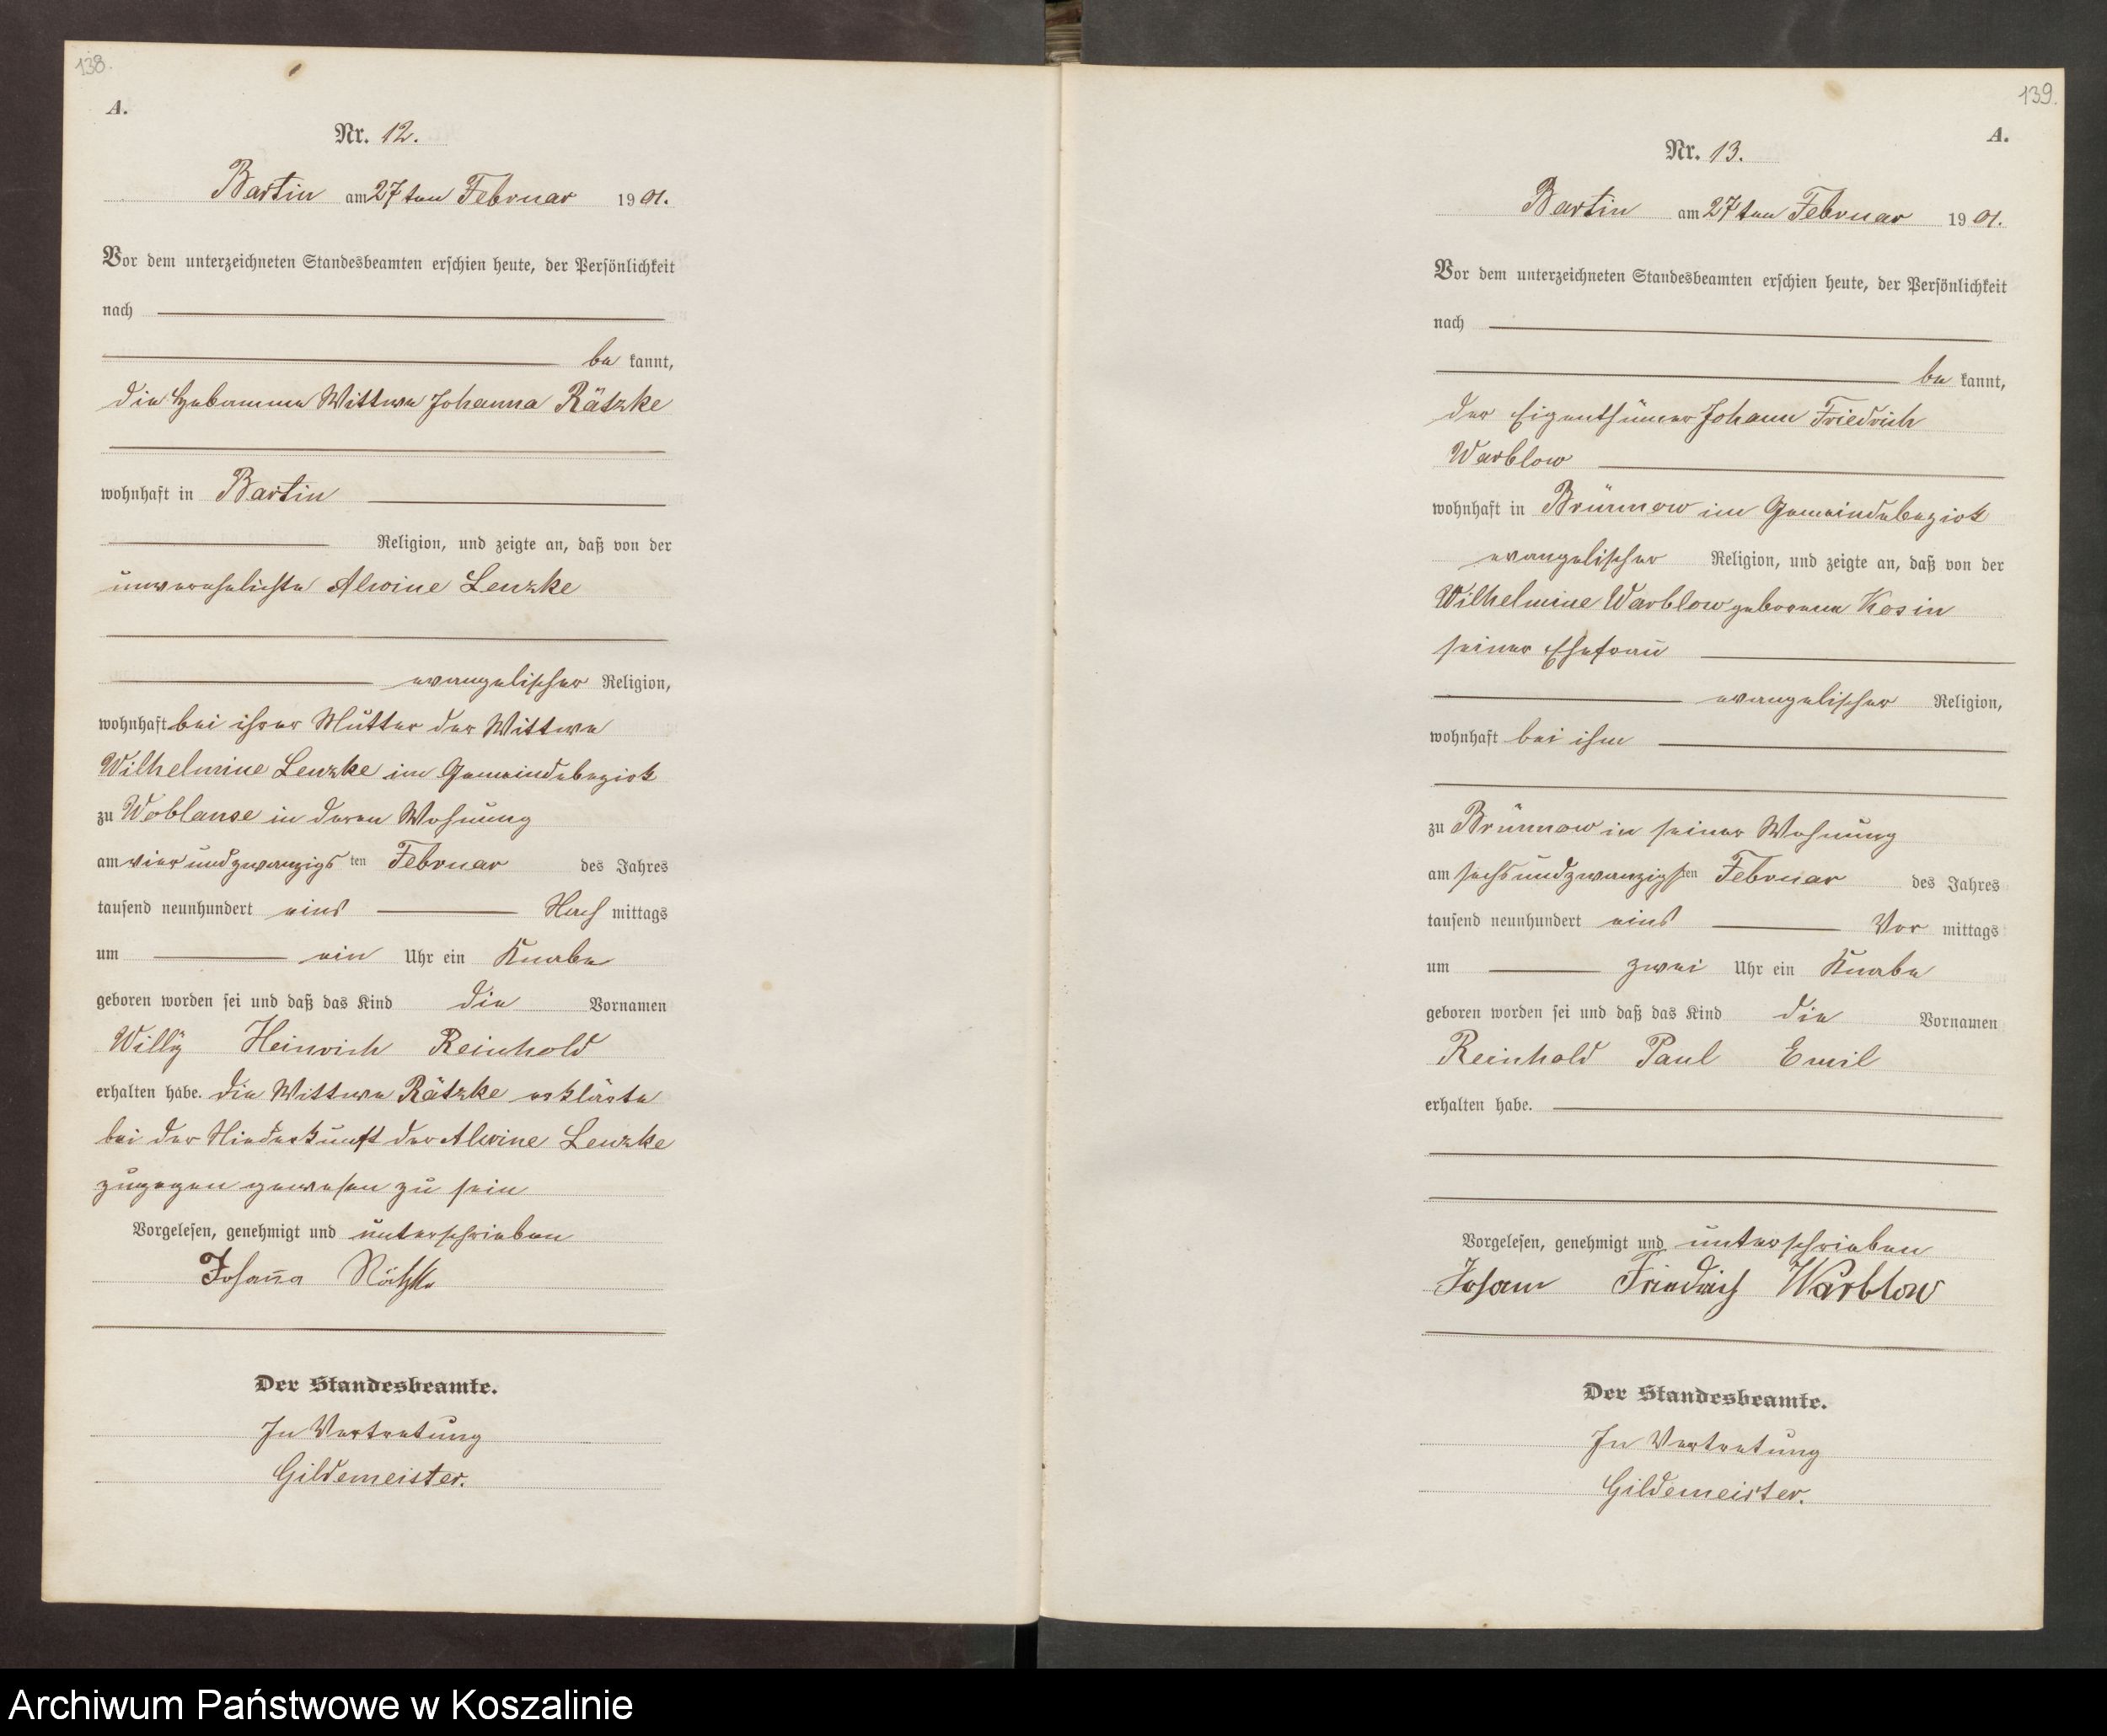 138.
A.
Nr. 12.
Bartin am 27ten Februar 1901.
Vor dem unterzeichneten Standesbeamten erschien heute, der Persönlichkeit
nach
be kannt,
die Hebamme Wittwe Johanna Rätzke
wohnhaft in Bartin
Religion, und zeigte an, daß von der
unverehelichte Alwine Lenzke
evangelischer Religion,
wohnhaft bei ihrer Mutter der Wittwe
Wilhelmine Lenzke im Gemeindebezirk
zu Woblanse in deren Wohnung
am vierundzwanzigs ten Februar des Jahres
tausend neunhundert eins Nach mittags
um ein Uhr ein Knabe
geboren worden sei und daß das Kind die Vornamen
Willÿ Heinrich Reinhold
erhalten habe. Die Wittwe Rätzke erklärte
bei der Niederkunft der Alwine Lenzke
zugegen gewesen zu sein
Vorgelesen, genehmigt und unterschrieben
Johan̄a Rätzke
Der Standesbeamte.
In Vertretung
Gildemeister.
139.
A.
Nr. 13.
Bartin am 27ten Februar 1901.
Vor dem unterzeichneten Standesbeamten erschien heute, der Persönlichkeit
nach
be kannt,
der Eigenthümer Johann Friedrich
Warblow
wohnhaft in Brünnow im Gemeindebezirk
evangelischer Religion, und zeigte an, daß von der
Wilhelmine Warblow geborene Kosin
seiner Ehefrau
evangelischer Religion,
wohnhaft bei ihm
zu Brünnow in seiner Wohnung
am sechsundzwanzigsten Februar des Jahres
tausend neunhundert eins Vor mittags
um zwei Uhr ein Knabe
geboren worden sei und daß das Kind die Vornamen
Reinhold Paul Emil
erhalten habe.
Vorgelesen, genehmigt und unterschrieben
Johann Friedrich Warblow
Der Standesbeamte.
In Vertretung
Gildemeister.
Archiwum Państwowe w Koszalinie